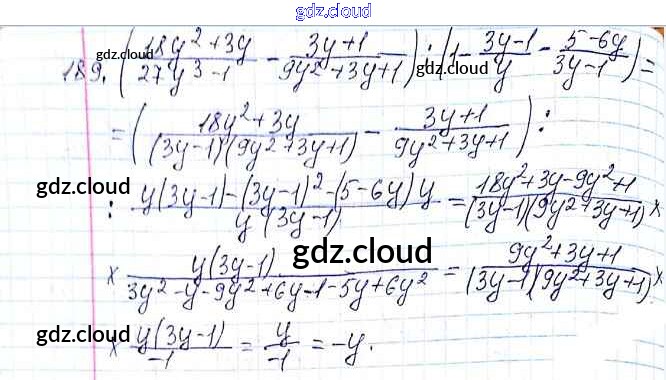 gdz.cloud
189. ((18y² + 3y)/(27y³ - 1) - (3y + 1)/(9y² + 3y + 1)) : (1 - (3y - 1)/y - (5 - 6y)/(3y - 1)) =
gdz.cloud gdz.cloud
= ((18y² + 3y)/((3y - 1)(9y² + 3y + 1)) - (3y + 1)/(9y² + 3y + 1)) :
gdz.cloud gdz.cloud
: (y(3y - 1) - (3y - 1)² - (5 - 6y)y)/(y(3y - 1)) = (18y² + 3y - 9y² + 1)/((3y - 1)(9y² + 3y + 1)) ×
gdz.cloud
× (y(3y - 1))/(3y² - y - 9y² + 6y - 1 - 5y + 6y²) = (9y² + 3y + 1)/((3y - 1)(9y² + 3y + 1)) ×
× (y(3y - 1))/(-1) = y/(-1) = -y.
gdz.cloud gdz.cloud